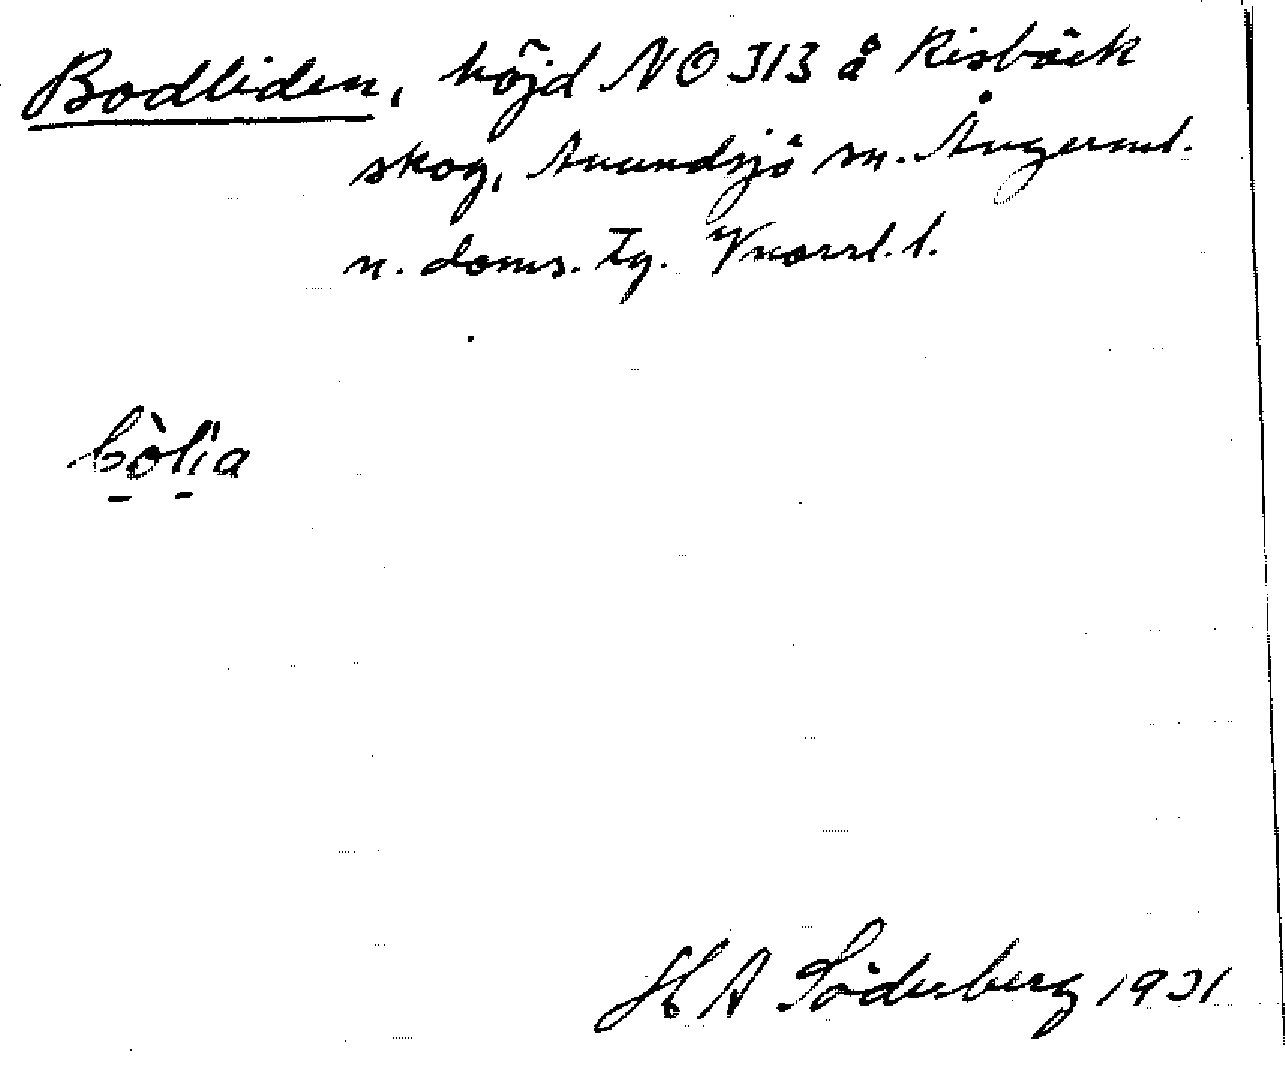 Bodliden, höjd NO 313 å Risbäck
skog, Anundsjö sn. Ångerml.
n. doms. tg. Vnorrl. l.
bòlia
H A Söderberg 1931